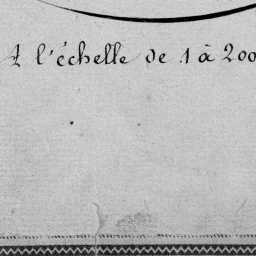 A l'échelle de 1 à 200